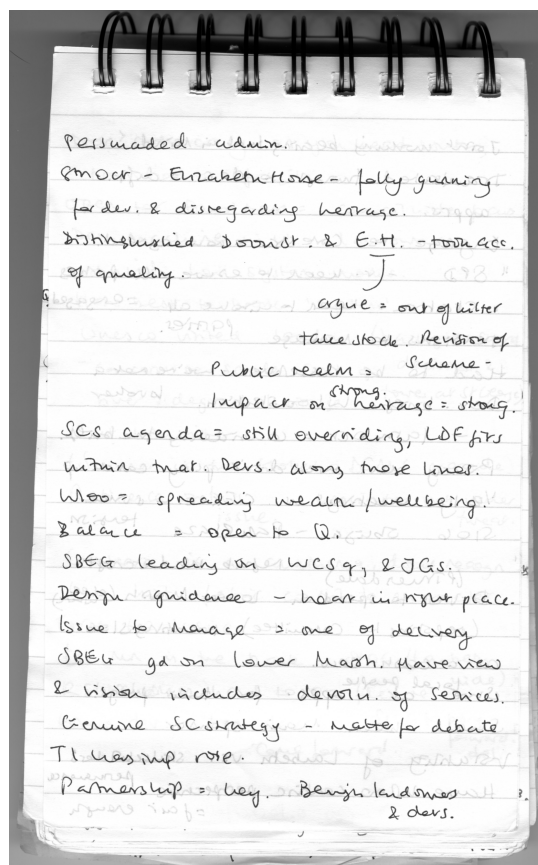 Persuaded admin.
8mOct - Elizabeth House - folly gunning
for dev. & disregarding heritage.
Distinguished Doonst. & E.H. - took acc.
of quality.
argue = out of kilter
take stock. Revision of
Scheme -
Public realm = strong.
Impact on heritage = strong.
SCS agenda = still overriding, LDF fits
within that. Devs. along those lines.
Wloo = spreading wealth/wellbeing.
Balance = open to Q.
SBEG leading on WCSq, & JGs.
Design guidance - heart in right place.
Issue to manage = one of delivery
SBEG gd on lower Marsh. Have view
& vision includes devoln. of services.
Genuine SC strategy - matter for debate
TI housing role.
Partnership = key. Benign landowners
& devs.